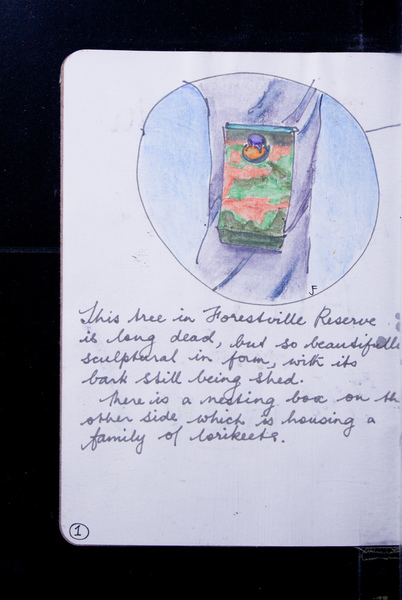 JF
This tree in Forestville Reserve
is long dead, but so beautifully
sculptural in form, with its
bark still being shed.
There is a nesting box on
other side which is housing a
family of lorikeets.
1